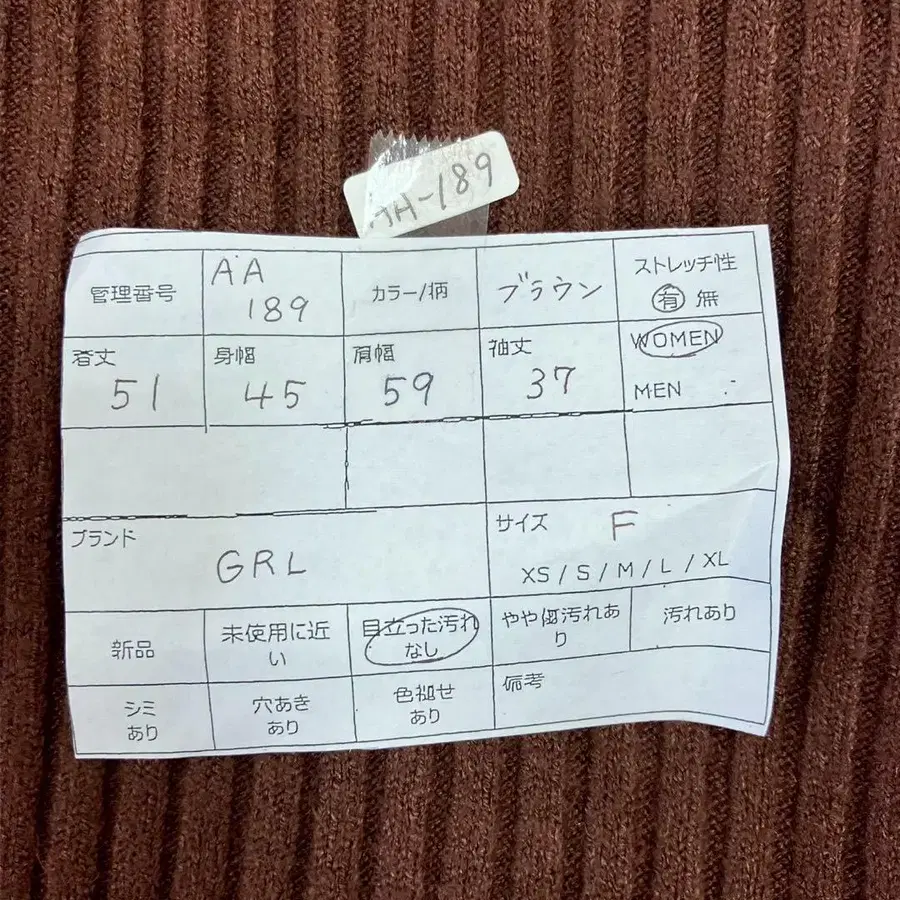 AA-189
管理番号
AA
189
カラー/柄
ブラウン
ストレッチ性
有 無
着丈
51
身幅
45
肩幅
59
袖丈
37
WOMEN
MEN
ブランド
GRL
サイズ
F
XS / S / M / L / XL
新品
未使用に近
い
目立った汚れ
なし
やや傷汚れあ
り
汚れあり
シミ
あり
穴あき
あり
色褪せ
あり
備考